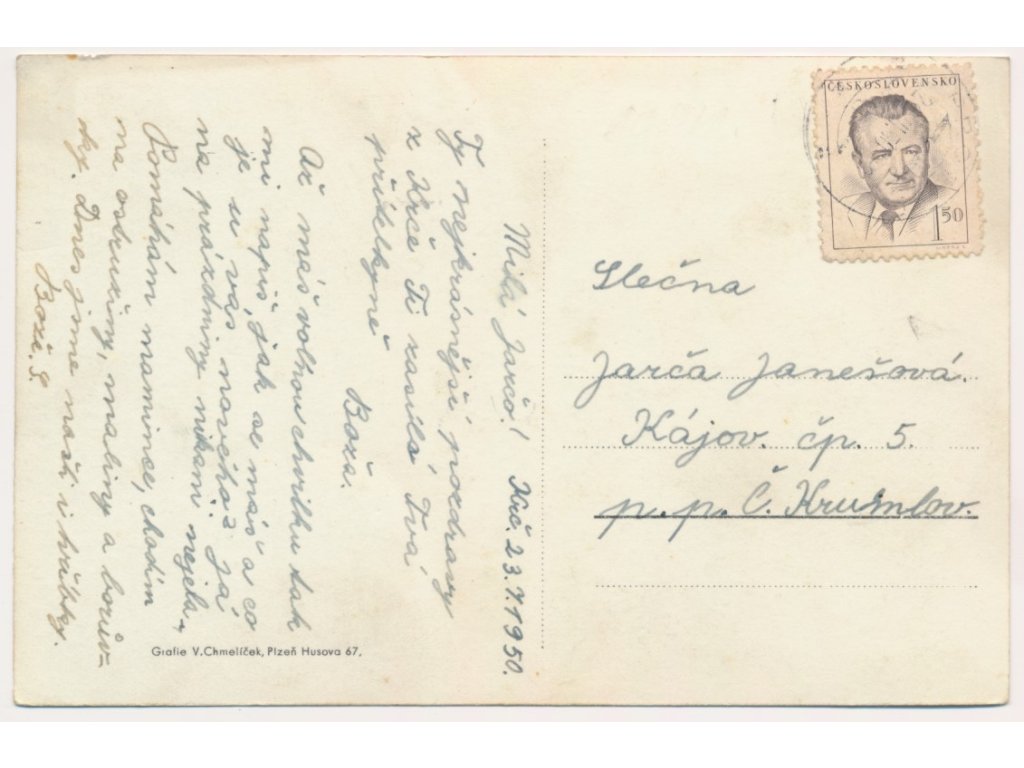 Milá Jarčo! Krč 23.7.1950.
Ty nejkrásnější pozdravy
z Krče Ti zasílá Tvá
přítelkyně
Boža.
Až máš volnou chvilku tak
mi napiš, jak se máš a co
je u vás nového? Já
na prázdniny nikam nejela,
Pomáhám mamince, chodím
na ostružiny, maliny a borův-
ky. Dnes jsme našli i hříbky.
Boža. J.
Grafie V.Chmelíček, Plzeň Husova 67,
ČESKOSLOVENSKO
1 50
Slečna
Jarča Janešová.
Kájov. čp. 5.
p.p. Č. Krumlov.